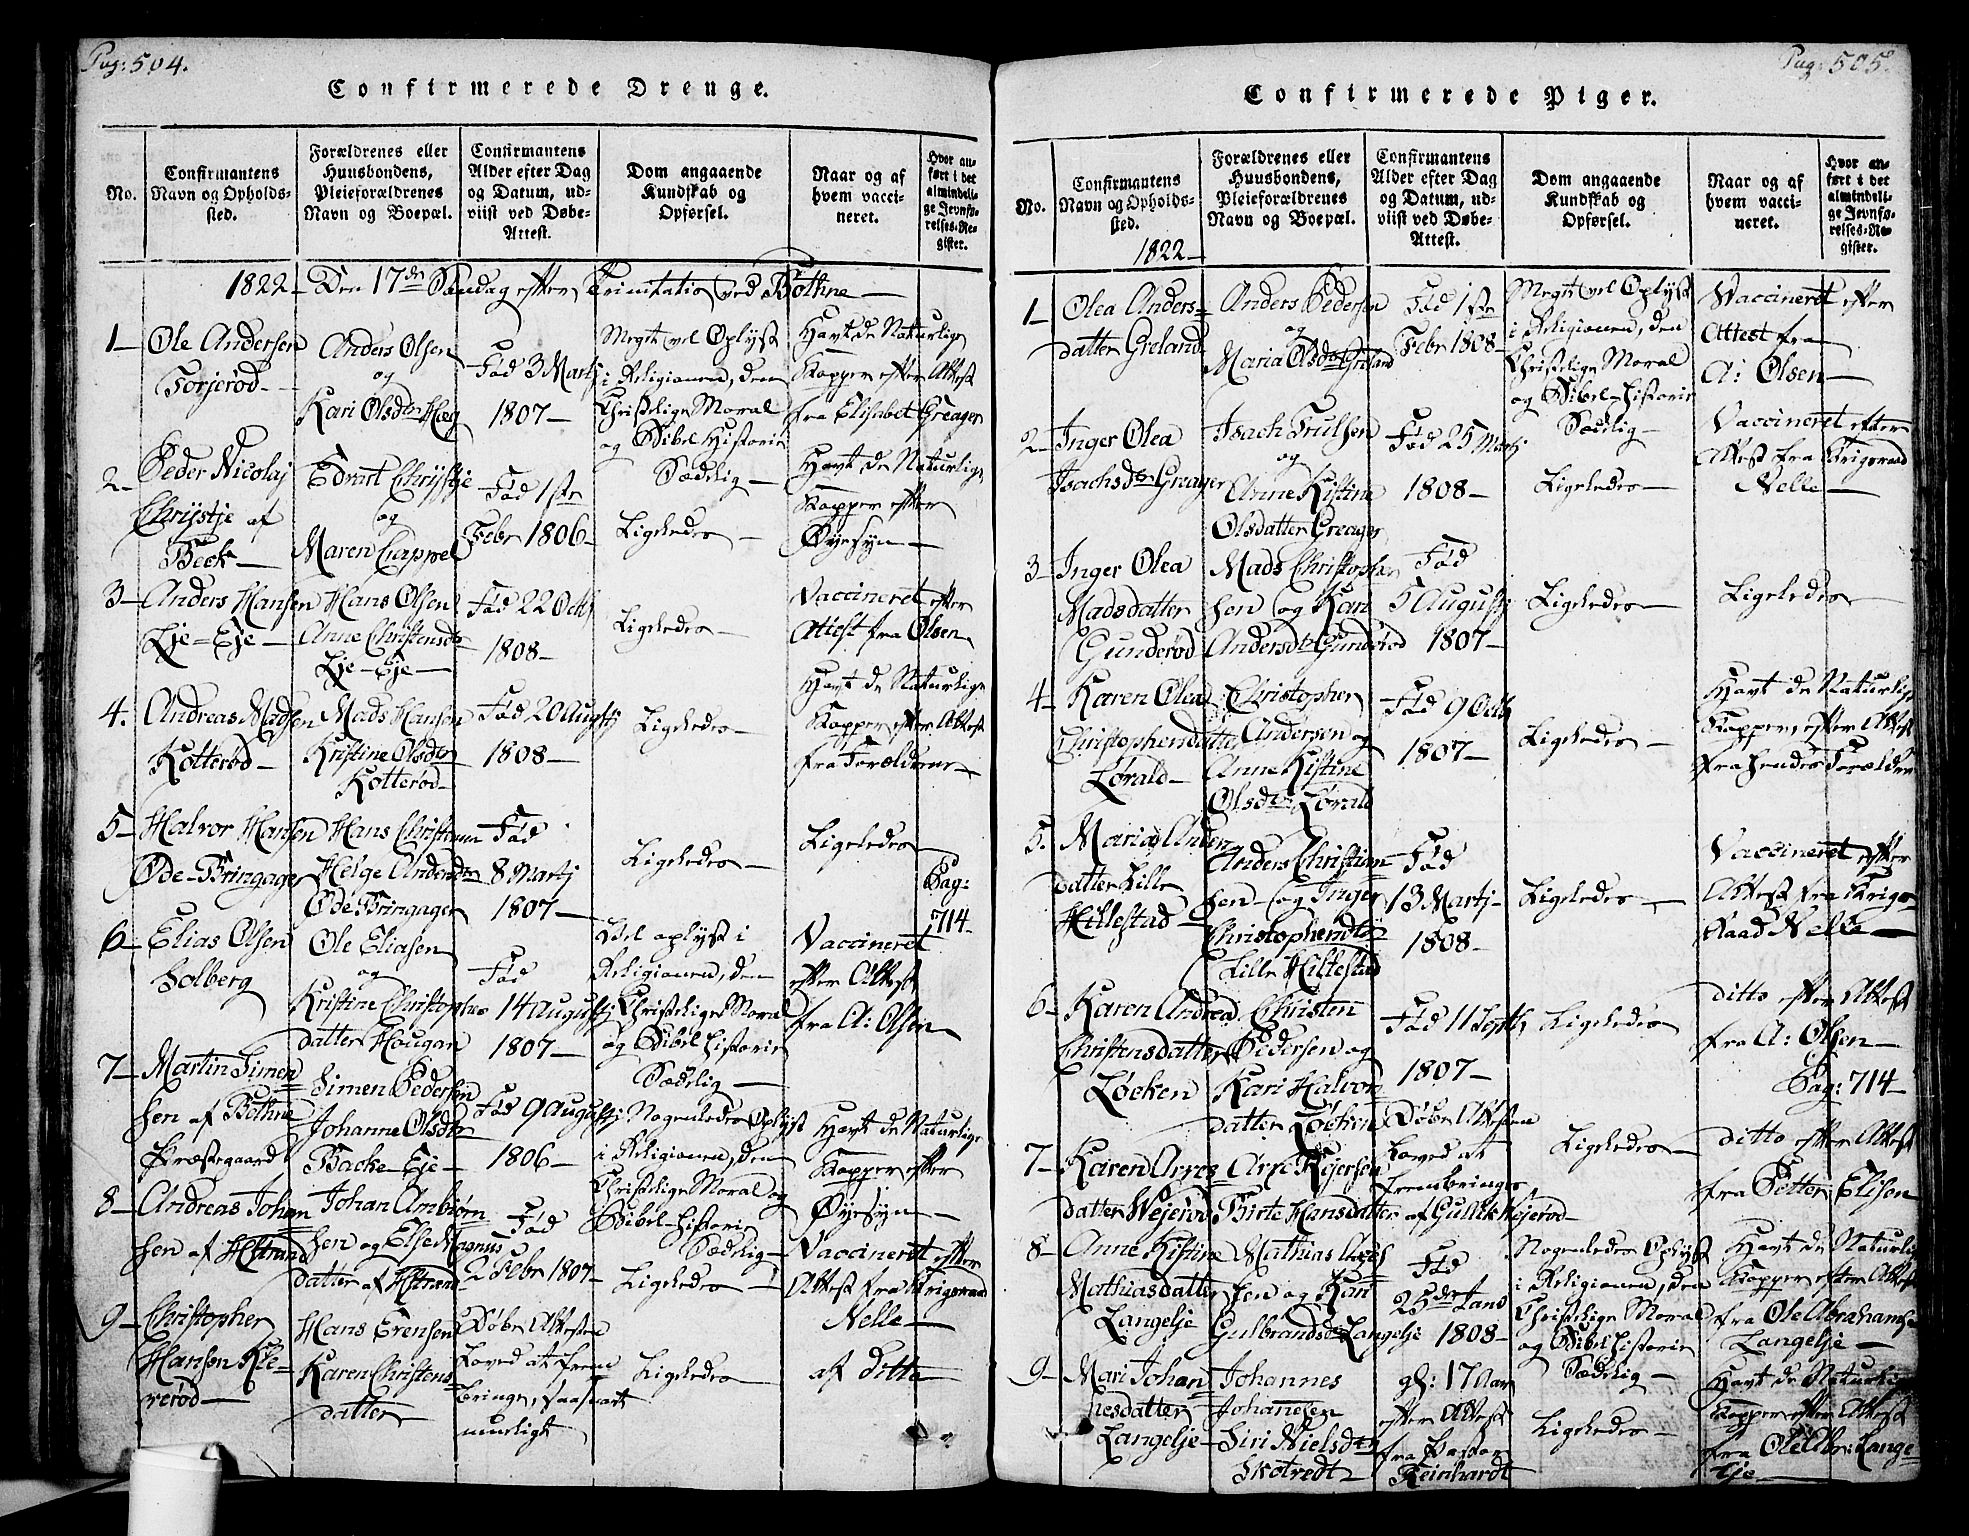 Pag: 504.
Confirmerede Drenge.
No.
Confirmantens Navn og Opholds-sted.
Forældrenes eller Huusbondens, Pleieforældrenes Navn og Boepæl.
Confirmantens Alder efter Dag og Datum, ud-viist ved Døbe-Attest.
Dom angaaende Kundskab og Opførsel.
Naar og af hvem vacci-neret.
Hvor an-ført i det almindeli-ge Jevnfø-relses-Re-gister.
1822 – Den 17de Søndag efter Trinitatis ved Bothne –
1 – Ole Andersen
Torjerød –
Anders Olsen
og
Kari Olsdtr Høg
Fød 3 Martj
1807 –
Megit vel Oplyst
i Religionen, den
Christelige Moral
og Bibel Historie
Sædelig –
Havt de Naturlige
Kopper efter Attest
fra Elisabet Greager
2 – Peder Nicolaj
Chrijstje af
Beck –
Edvart Chrijstje
og
Maren Cappel
Fød 1ste
Febr 1806 –
Ligeledes –
Havt de Naturlige
Kopper efter
Øyesyn –
3 – Anders Hansen
Eje –
Hans Olsen
Anne Christensdtr
Eje –
Fød 22 Octb
1808 –
Ligeledes –
Vaccineret efter
Attest fra Olsen
4. Andreas Madsen
Kotterød –
Mads Hansen
Kristine Olsdtr
Kotterød –
Fød 20 Augustj
1808 –
Ligeledes –
Havt de Naturlige
Kopper efter Attest
fra Forældrene –
5 – Halvor Hansen
Øde-Bringager
Hans Christensen
Helge Andersdtr
Øde Bringager
Fød
8 Martj
1807 –
Ligeledes –
Ligeledes –
Pag:
714 –
6 – Elias Olsen
Solberg
Ole Eliasen
og
Kristine Christophers
datter Hougan
Fød
14 Augustj
1807 –
Vel oplyst i
Religionen, den
Christelige Moral
og Bibel historie
Sædelig –
Vaccineret
efter Attest
fra A: Olsen
7 – Martin Simen
sen af Bothne
Præstegaard
Simen Pedersen
Johanne Olsdtr
Backe-Eje –
Fød 9 Augustj
1806 –
Nogenledes Oplyst
i Religionen, den
Christelige Moral og
Bibel-historie
Sædelig –
Havt de Naturlige
Kopper efter
Øyesyn –
8 – Andreas Johan
sen af
Johan Ambiørn
sen og Else Magnus
datter af
Fød
2 Febr 1807 –
Ligeledes –
Vaccineret efter
Attest fra Krigsraad
Nelle –
9 – Christopher
Hansen Kle-
verød –
Hans Erensen
Karen Christens
datter
Døbe Attesten
Loved at frem
bringe, saasnart
mueligt
Ligeledes –
af ditto –
Pag: 505.
Confirmerede Piger.
No.
Confirmantens Navn og Opholds-sted.
1822 –
Forældrenes eller Huusbondens, Pleieforældrenes Navn og Boepæl.
Confirmantens Alder efter Dag og Datum, ud-viist ved Døbe-Attest.
Dom angaaende Kundskab og Opførsel.
Naar og af hvem vacci-neret.
Hvor an-ført i det almindeli-ge Jevnfø-relses-Re-gister.
1 – Olea Anders-
datter Greland
Anders Pedersen
og
Maria Olsdtr Greland
Fød 1ste
Febr 1808 –
Megit vel Oplyst
i Religionen, den
Christelige Moral
og Bibel-historie
Sædelig –
Vaccineret efter
Attest fra
A: Olsen –
2 – Inger Olea
Isachsdtr Greager
Isach Trulsen
og
Anne Kistine
Olsdatter Greager
Fød 25 Martj
1808 –
Ligeledes –
Vaccineret efter
Attest fra Krigsraad
Nelle –
3 – Inger Olea
Madsdatter
Gunderød
Mads Christopher
sen og Kari
Andersdtr Gunderød
Fød
5 Augustj
1807 –
Ligeledes –
Ligeledes –
4 – Karen Olea
Christophersdatter
Lørald –
Christopher
Andersen og
Anne Kistine
Olsdtr Lørald
Fød 9 Octb
1807 –
Ligeledes –
Havt de Naturlige
Kopper, efter Attest
fra hendes Forældre
5. Maria Anders
datter Lille
Hillestad –
Anders Christian
sen – og Inger
Christophersdtr
Lille Hillestad
Fød
13 Martj –
1808 –
Ligeledes –
Vaccineret efter
Attest fra Krigs-
Raad Nelle –
6 – Karen Andrea
Christensdatter
Løcken
Christen
Pedersen og
Kari Halvors
datter Løcken
Fød 11 Septb
1807 –
Ligeledes
ditto efter Attest
fra A: Olsen –
Pag: 714 –
7 – Karen Arnes
datter Wejerød
Arne
Birte Hansdatter
Døbe Attesten
Loved at
frembringes
af Gullik Wejerød –
Ligeledes –
ditto efter Attest
fra Petter Elisen
8 – Anne Kistine
Mathiasdatter
Langelje
Mathias
sen og Kari
Gulbrandsdtr Langelje
Fød
25de Janr
1808 –
Nogenledes Oplyst
i Religionen, den
Christelige Moral
og Bibel historie
Sædelig –
Havt de Naturlige
Kopper efter Attest
fra Ole Abrahamsen
Langelje –
9 – Mari Johan
nesdatter
Langelje –
Johannes
Johannesen
Siri Nielsdtr
Skotredt –
gl: 17 Aar
efter Attest
fra Pastor
Reinhardt
Ligeledes –
Havt de Naturlige
Kopper efter Attest
fra Ole Abr: Lange
lje –